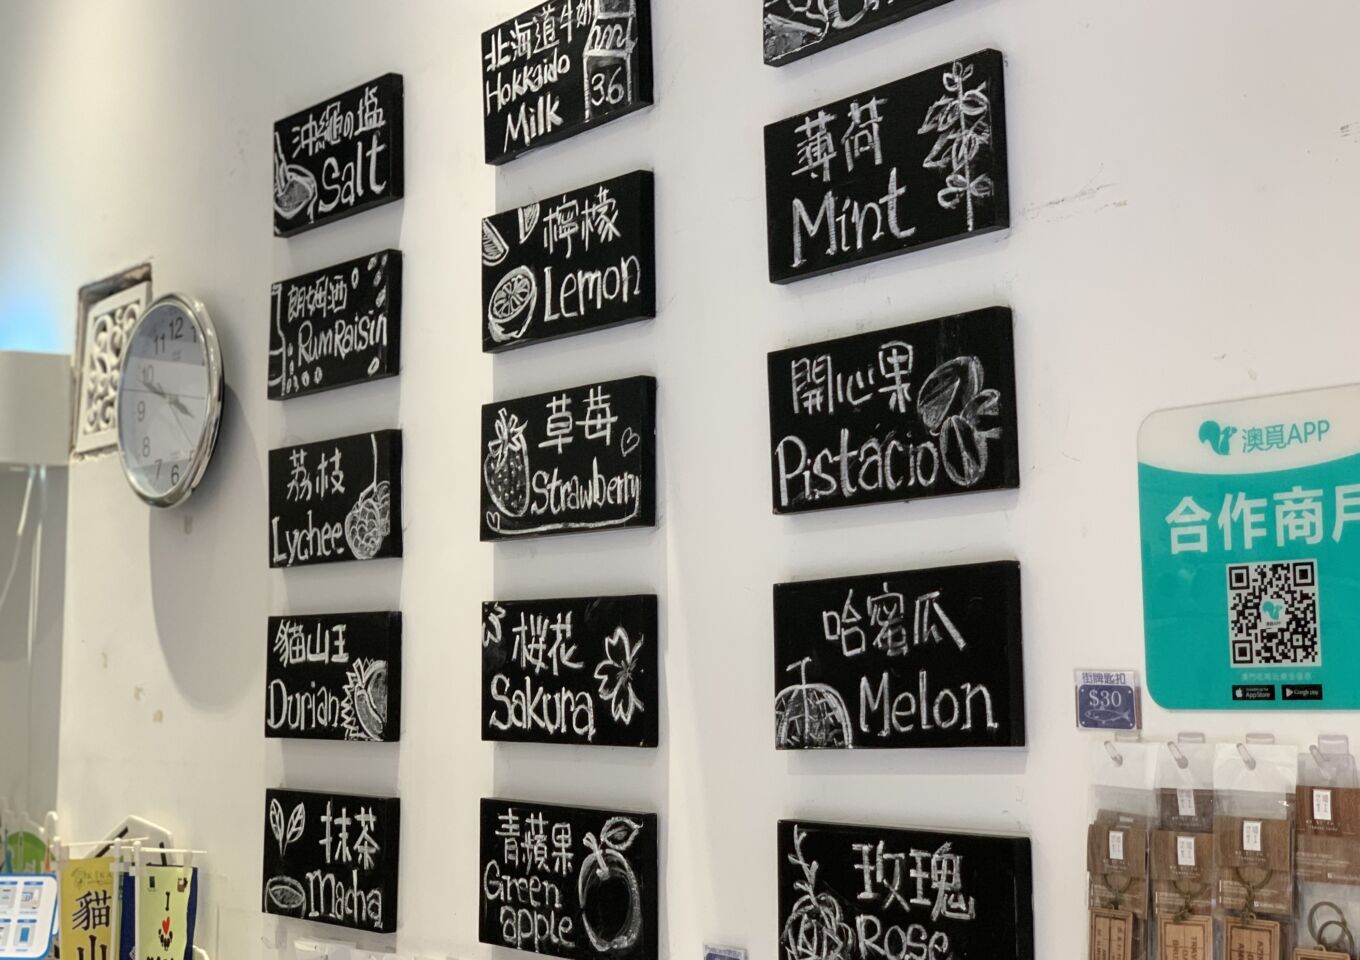 沖繩の塩
Salt
朗姆酒
Rum Raisin
荔枝
Lychee
貓山王
Durian
抹茶
Macha
北海道牛奶
Hokkaido
Milk
3.6
檸檬
Lemon
草莓
Strawberry
桜花
Sakura
青蘋果
Green
apple
薄荷
Mint
開心果
Pistacio
哈蜜瓜
Melon
玫瑰
Rose
11 12 1
10
9
8
7 6
澳覓APP
合作商戶
App Store
Google play
街牌匙扣
$30
貓
山
I